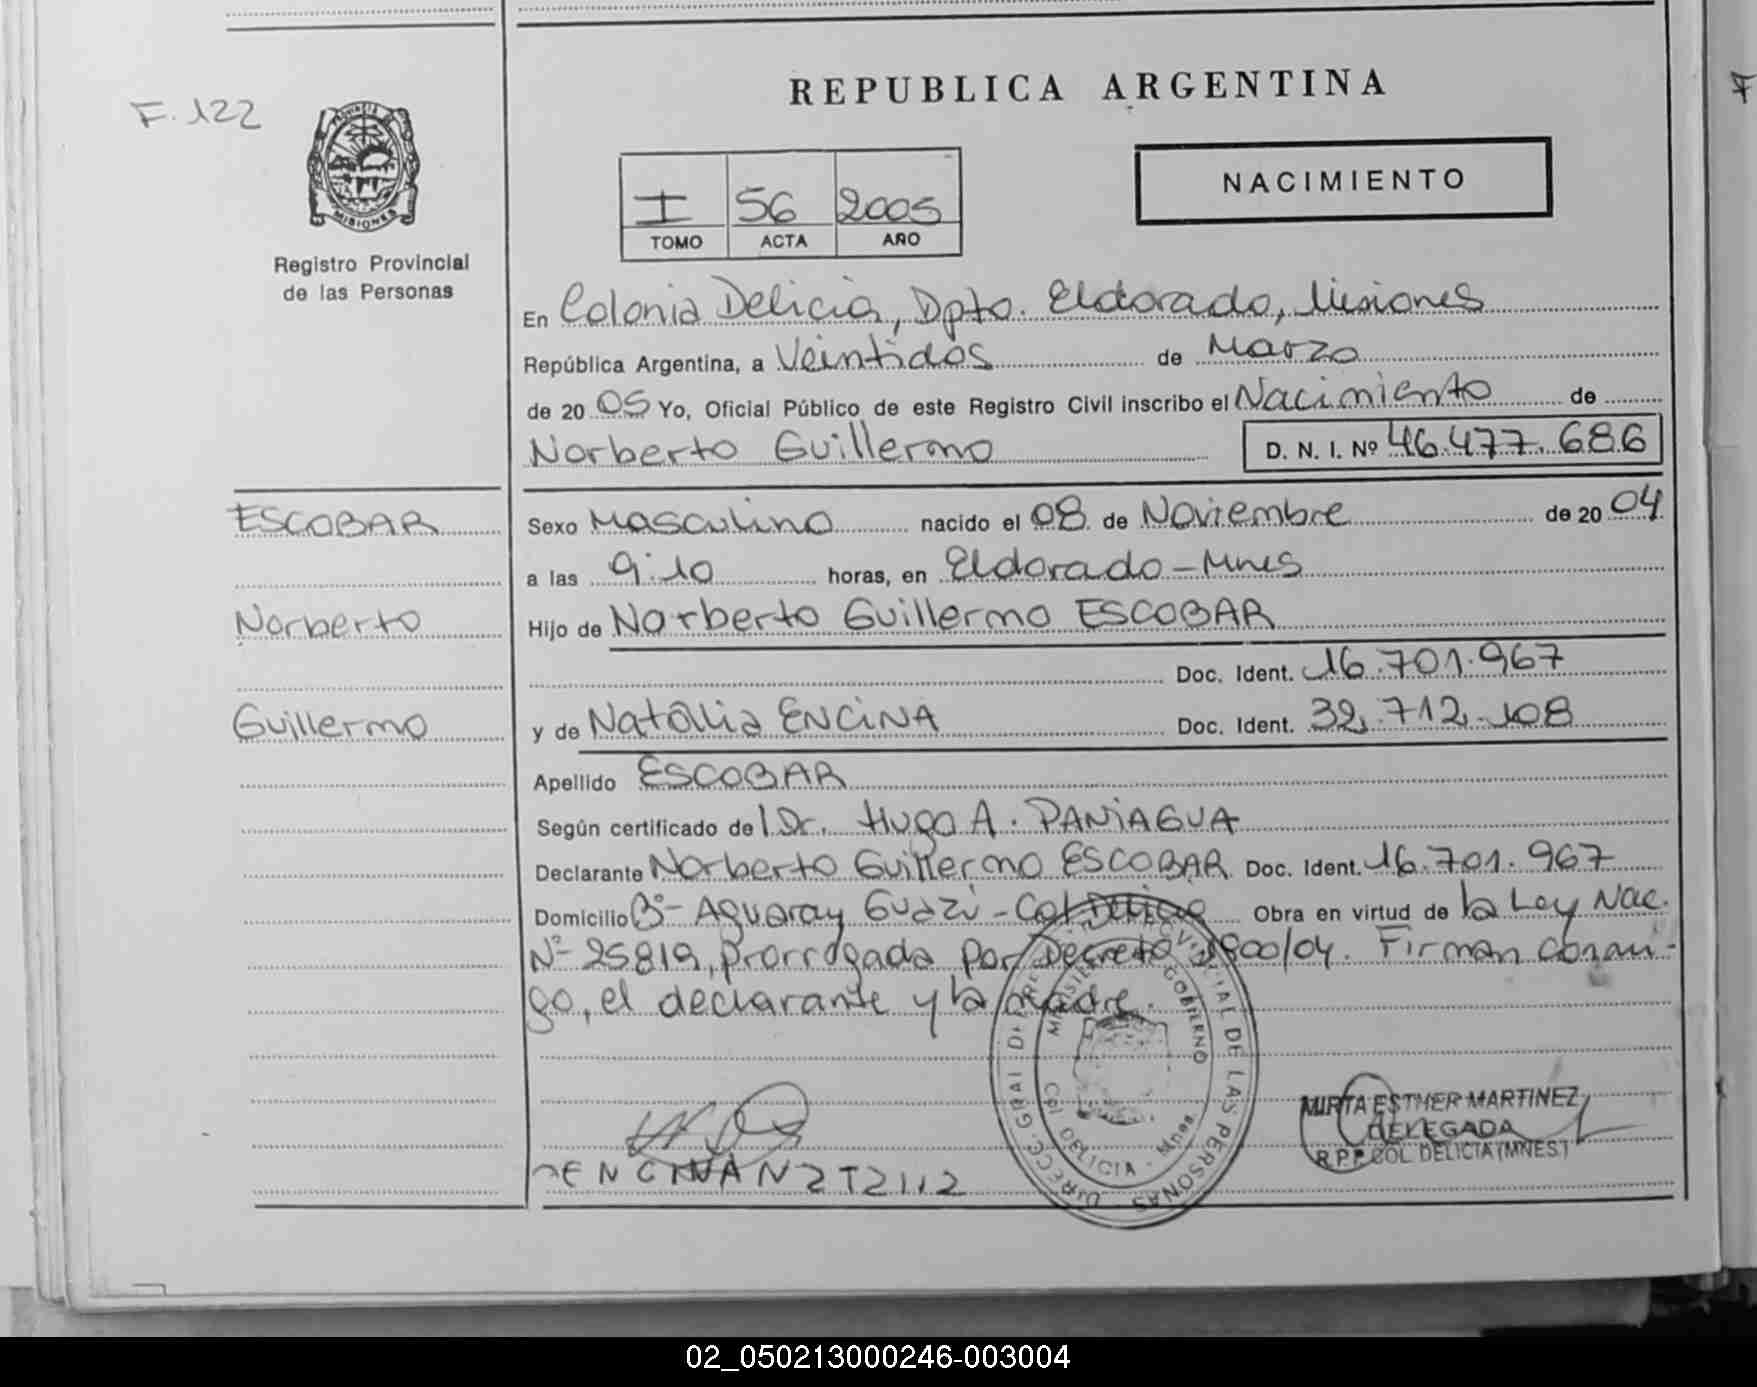 F. 122
PROVINCIA
MISIONES
Registro Provincial
de las Personas
REPUBLICA ARGENTINA
I 56 2005
TOMO ACTA AÑO
NACIMIENTO
En Colonia Delicia, Dpto. Eldorado, Misiones
República Argentina, a Veintidos de Marzo
de 20 05 Yo, Oficial Público de este Registro Civil inscribo el Nacimiento de
Norberto Guillermo D. N. I. Nº 46.477.686
ESCOBAR
Norberto
Guillermo
Sexo Masculino nacido el 08 de Noviembre de 20 04
a las 9:10 horas, en Eldorado - Mnes
Hijo de Norberto Guillermo ESCOBAR
Doc. Ident. 16.701.967
y de Natalia ENCINA Doc. Ident. 32.712.108
Apellido ESCOBAR
Según certificado del Dr. Hugo A. PANIAGUA
Declarante Norberto Guillermo ESCOBAR Doc. Ident. 16.701.967
Domicilio Bº- Aguaray Guazú - Col Delicia Obra en virtud de la Ley Nac.
Nº 25819, prorrogada por Decreto 1800/04. Firman conmi-
go, el declarante y la madre.
DIRECC. GRAL DE REG. PROVINCIAL DE LAS PERSONAS
MINISTERIO GOBIERNO
Col DELICIA - Mnes.
MIRTA ESTHER MARTINEZ
DELEGADA
R.P.P. COL. DELICIA (MNES)
02_050213000246-003004